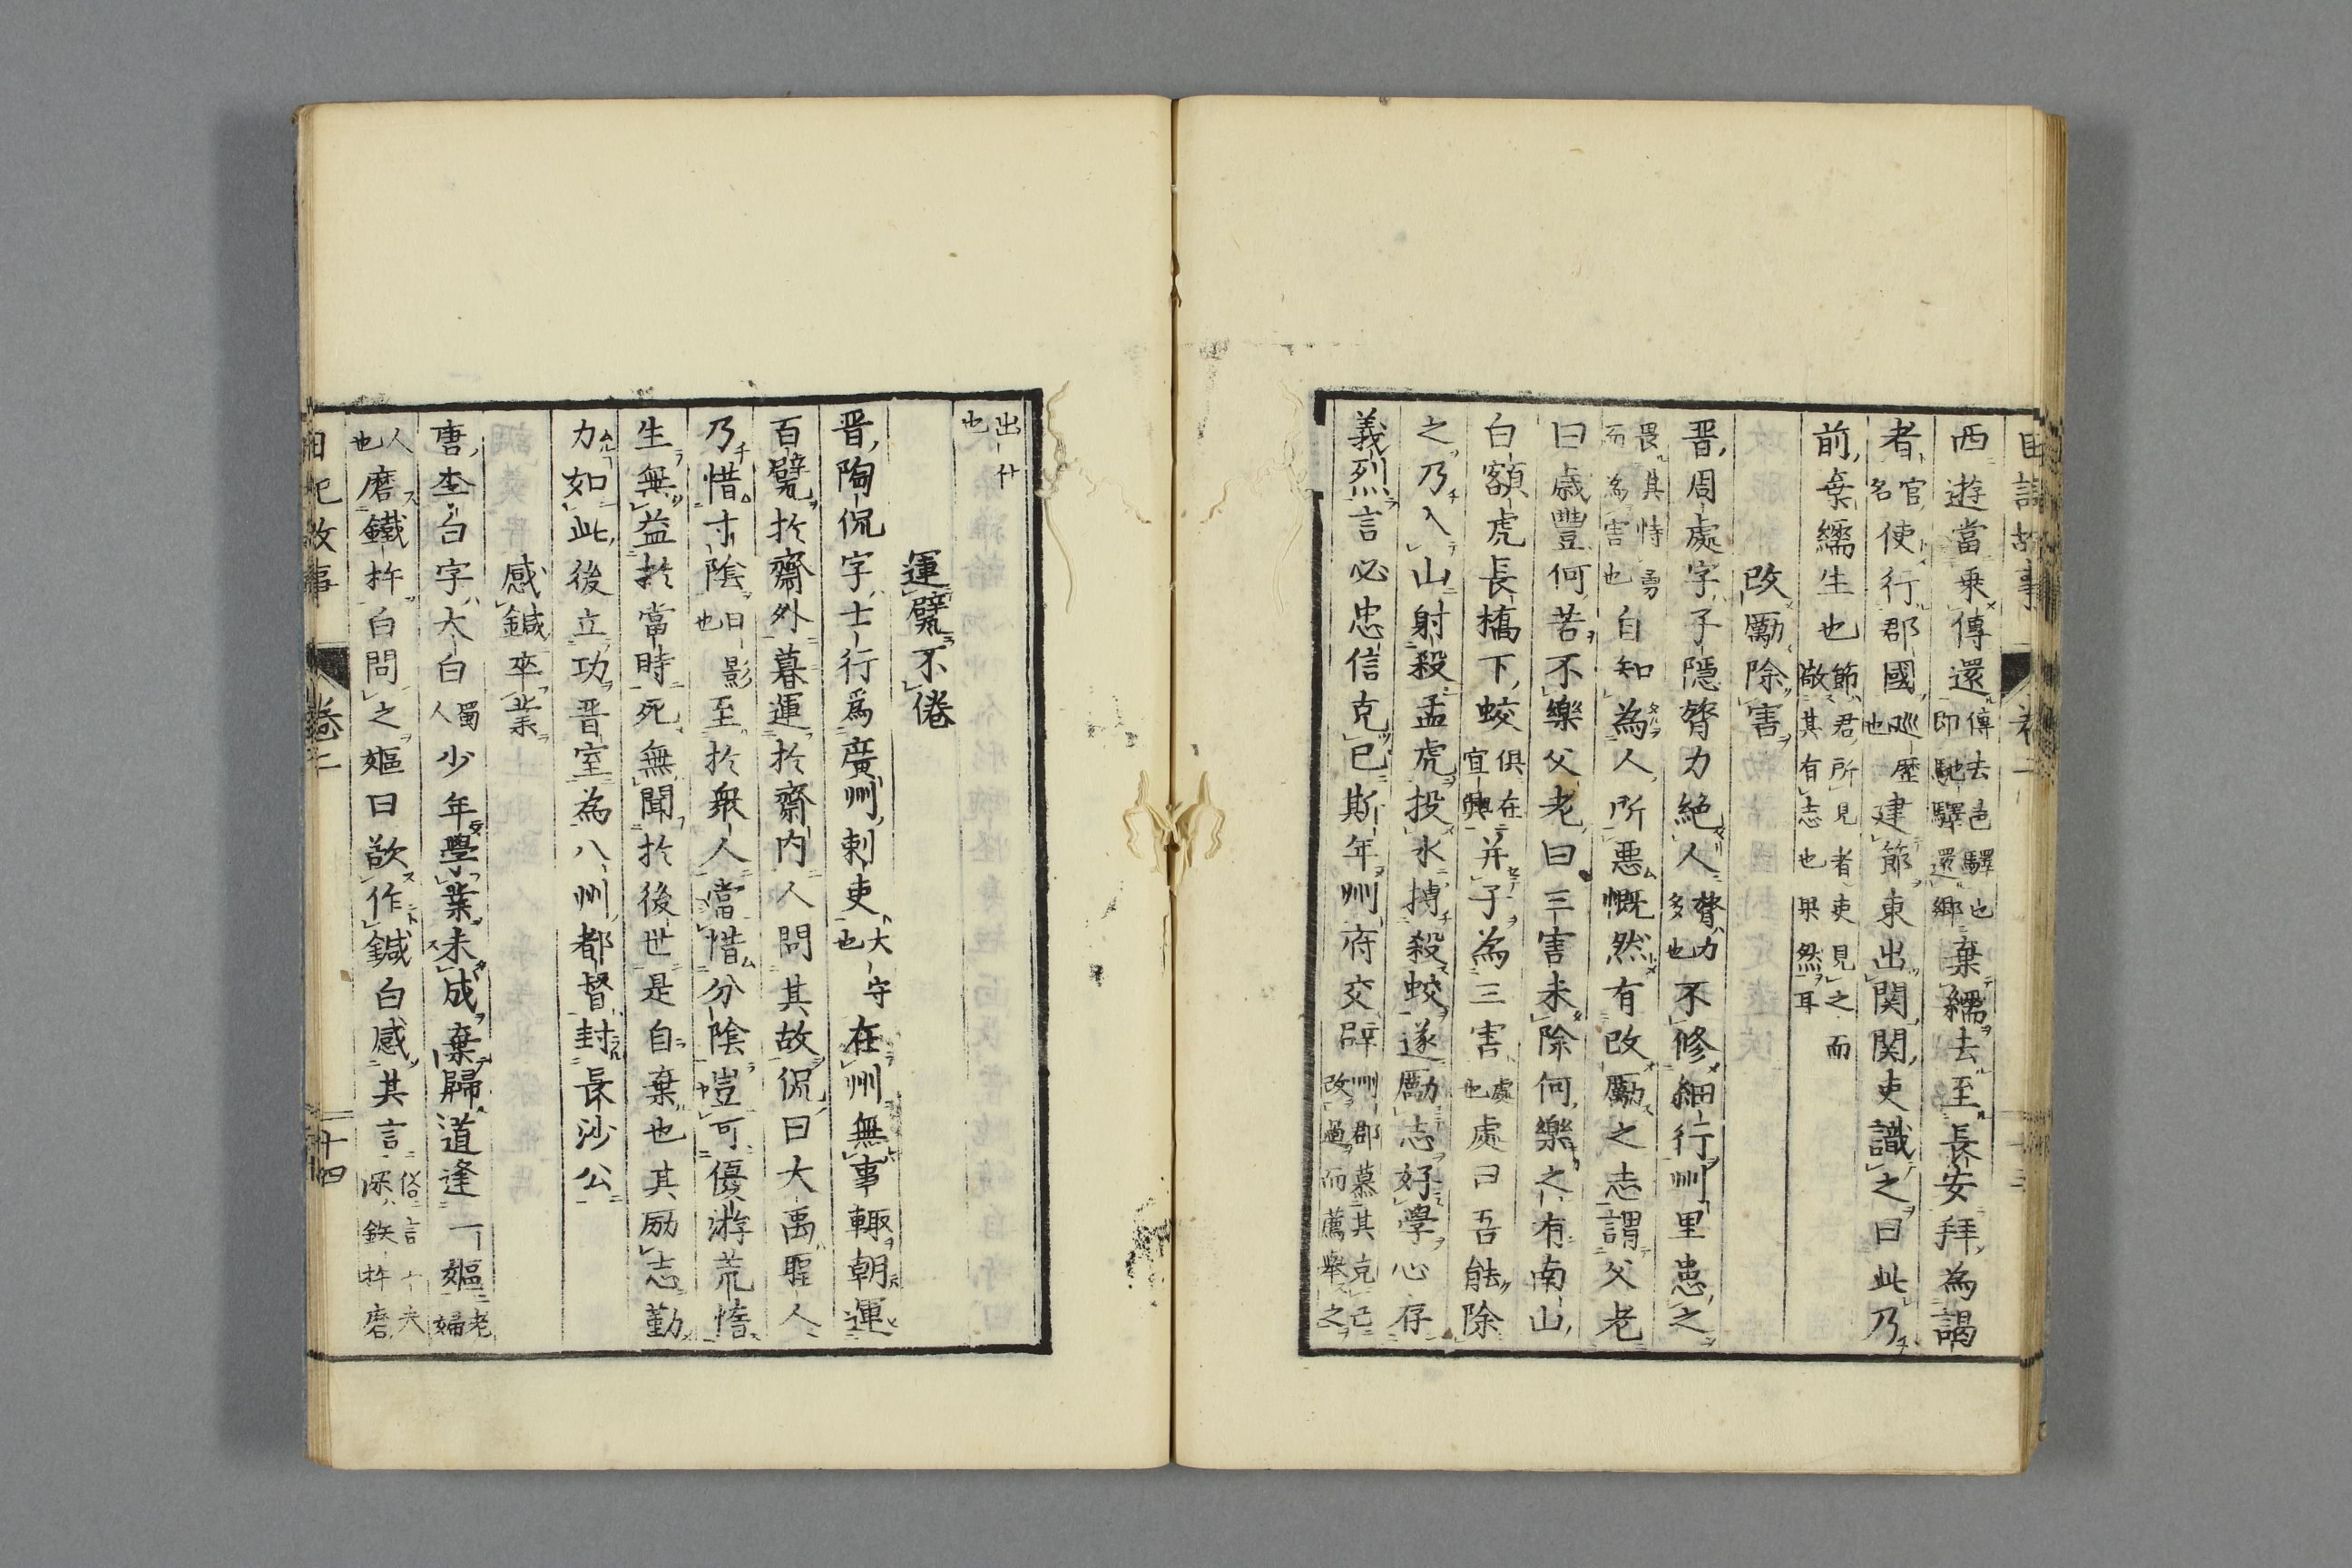 日記故事 卷二
西遊當乘傳還傳去邑驛也即馳驛還鄉棄繻去至長安拜為謁
者官名使行郡國巡歷也建節東出関関吏識之曰此乃
前棄繻生也節君所見者吏見之而敵其有志也果然耳
改勵除害
晋周處字子隱膂力絶人膂力多也不修細行州里患之
畏其恃勇而為害也自知為人所悪慨然有改勵之志謂父老
曰歳豐何苦不樂父老曰三害未除何樂之有南山
白額虎長橋下蛟俱在宜興并子為三害處也處曰吾能除
之乃入山射殺孟虎投水搏殺蛟遂勵志好學心存
義烈言必忠信克已斯年州府交辟州郡慕其克已改過而薦舉之
出仕也
運甓不倦
晋陶侃字士行爲廣州刺吏大守也在州無事輙朝運
百甓於齋外暮運於齋内人問其故侃曰大禹聖人
乃惜寸陰日影也至於衆人當惜分陰豈可優游荒惰
生無益於當時死無聞於後世是自棄也其励志勤
力如此後立功晋室為八州都督封長沙公
感鍼卒業
唐李白字大白蜀人少年學業未成棄歸道逢一嫗老婦
人也磨鐵杵白問之嫗曰欲作鍼白感其言俗言十夫深鉄杵磨
日記故事 卷二 十四